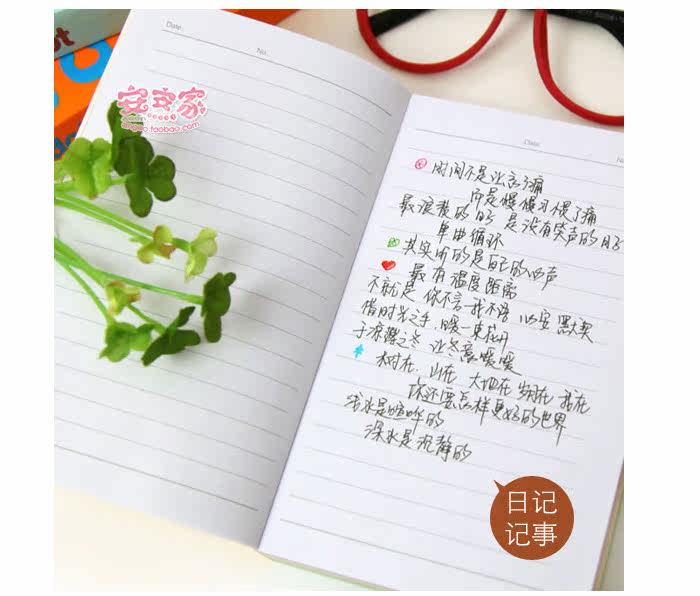 Date:
No:
安安家
anguo.taobao.com
Date:
No
时间不是让忘了痛
而是慢慢习惯了痛
最浪费的日子 是没有笑声的日子
单曲循环
其实听的是自己的心声
最有温度距离
不就是 你不言 我不语 心安 默契
借时光之手 暖一束花开
于凉薄之冬 让冬意暖暖
树在 山在 大地在 岁月在 我在
你还要怎样更好的世界
浅水是喧哗的
深水是沉静的
日记
记事